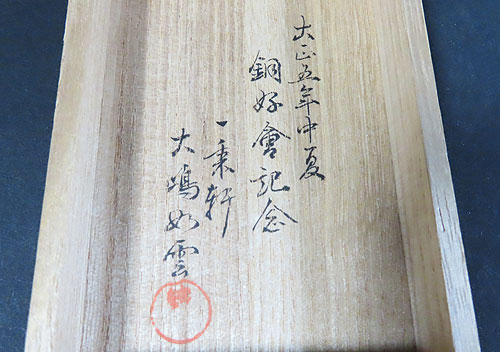 大正五年中夏
銅好會記念
一乗軒
大嶋如雲